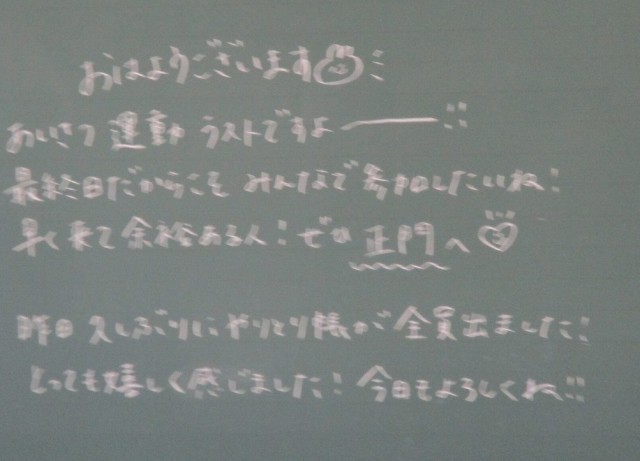 おはようございます!
あいさつ運動ラストですよ――!!
最終日だからこそみんなで参加したいね!
早く来て余裕ある人!ぜひ正門へ
昨日久しぶりにやりとり帳が全員出ました!
とっても嬉しく感じました!今日もよろしくね!!